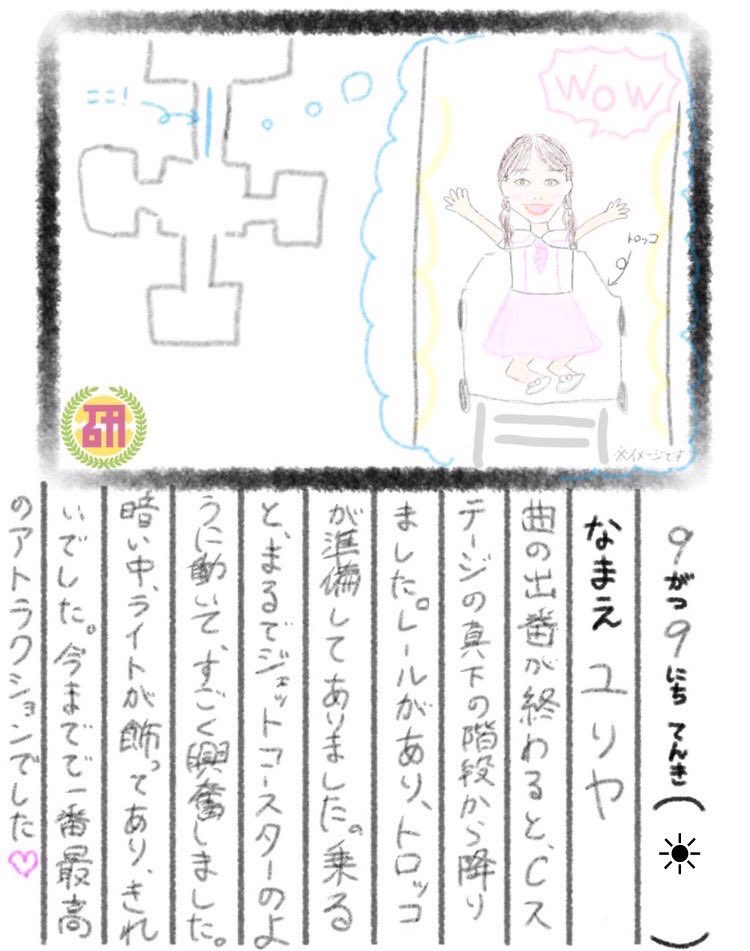 ここ！
WOW
トロッコ
※イメージです
研
9がつ9にち てんき(☀)
なまえ ユリヤ
曲の出番が終わると、Cス
テージの真下の階段から降り
ました。レールがあり、トロッコ
が準備してありました。乗る
と、まるでジェットコースターのよ
うに動いて、すごく興奮しました。
暗い中、ライトが飾ってあり、きれ
いでした。今までで一番最高
のアトラクションでした♡